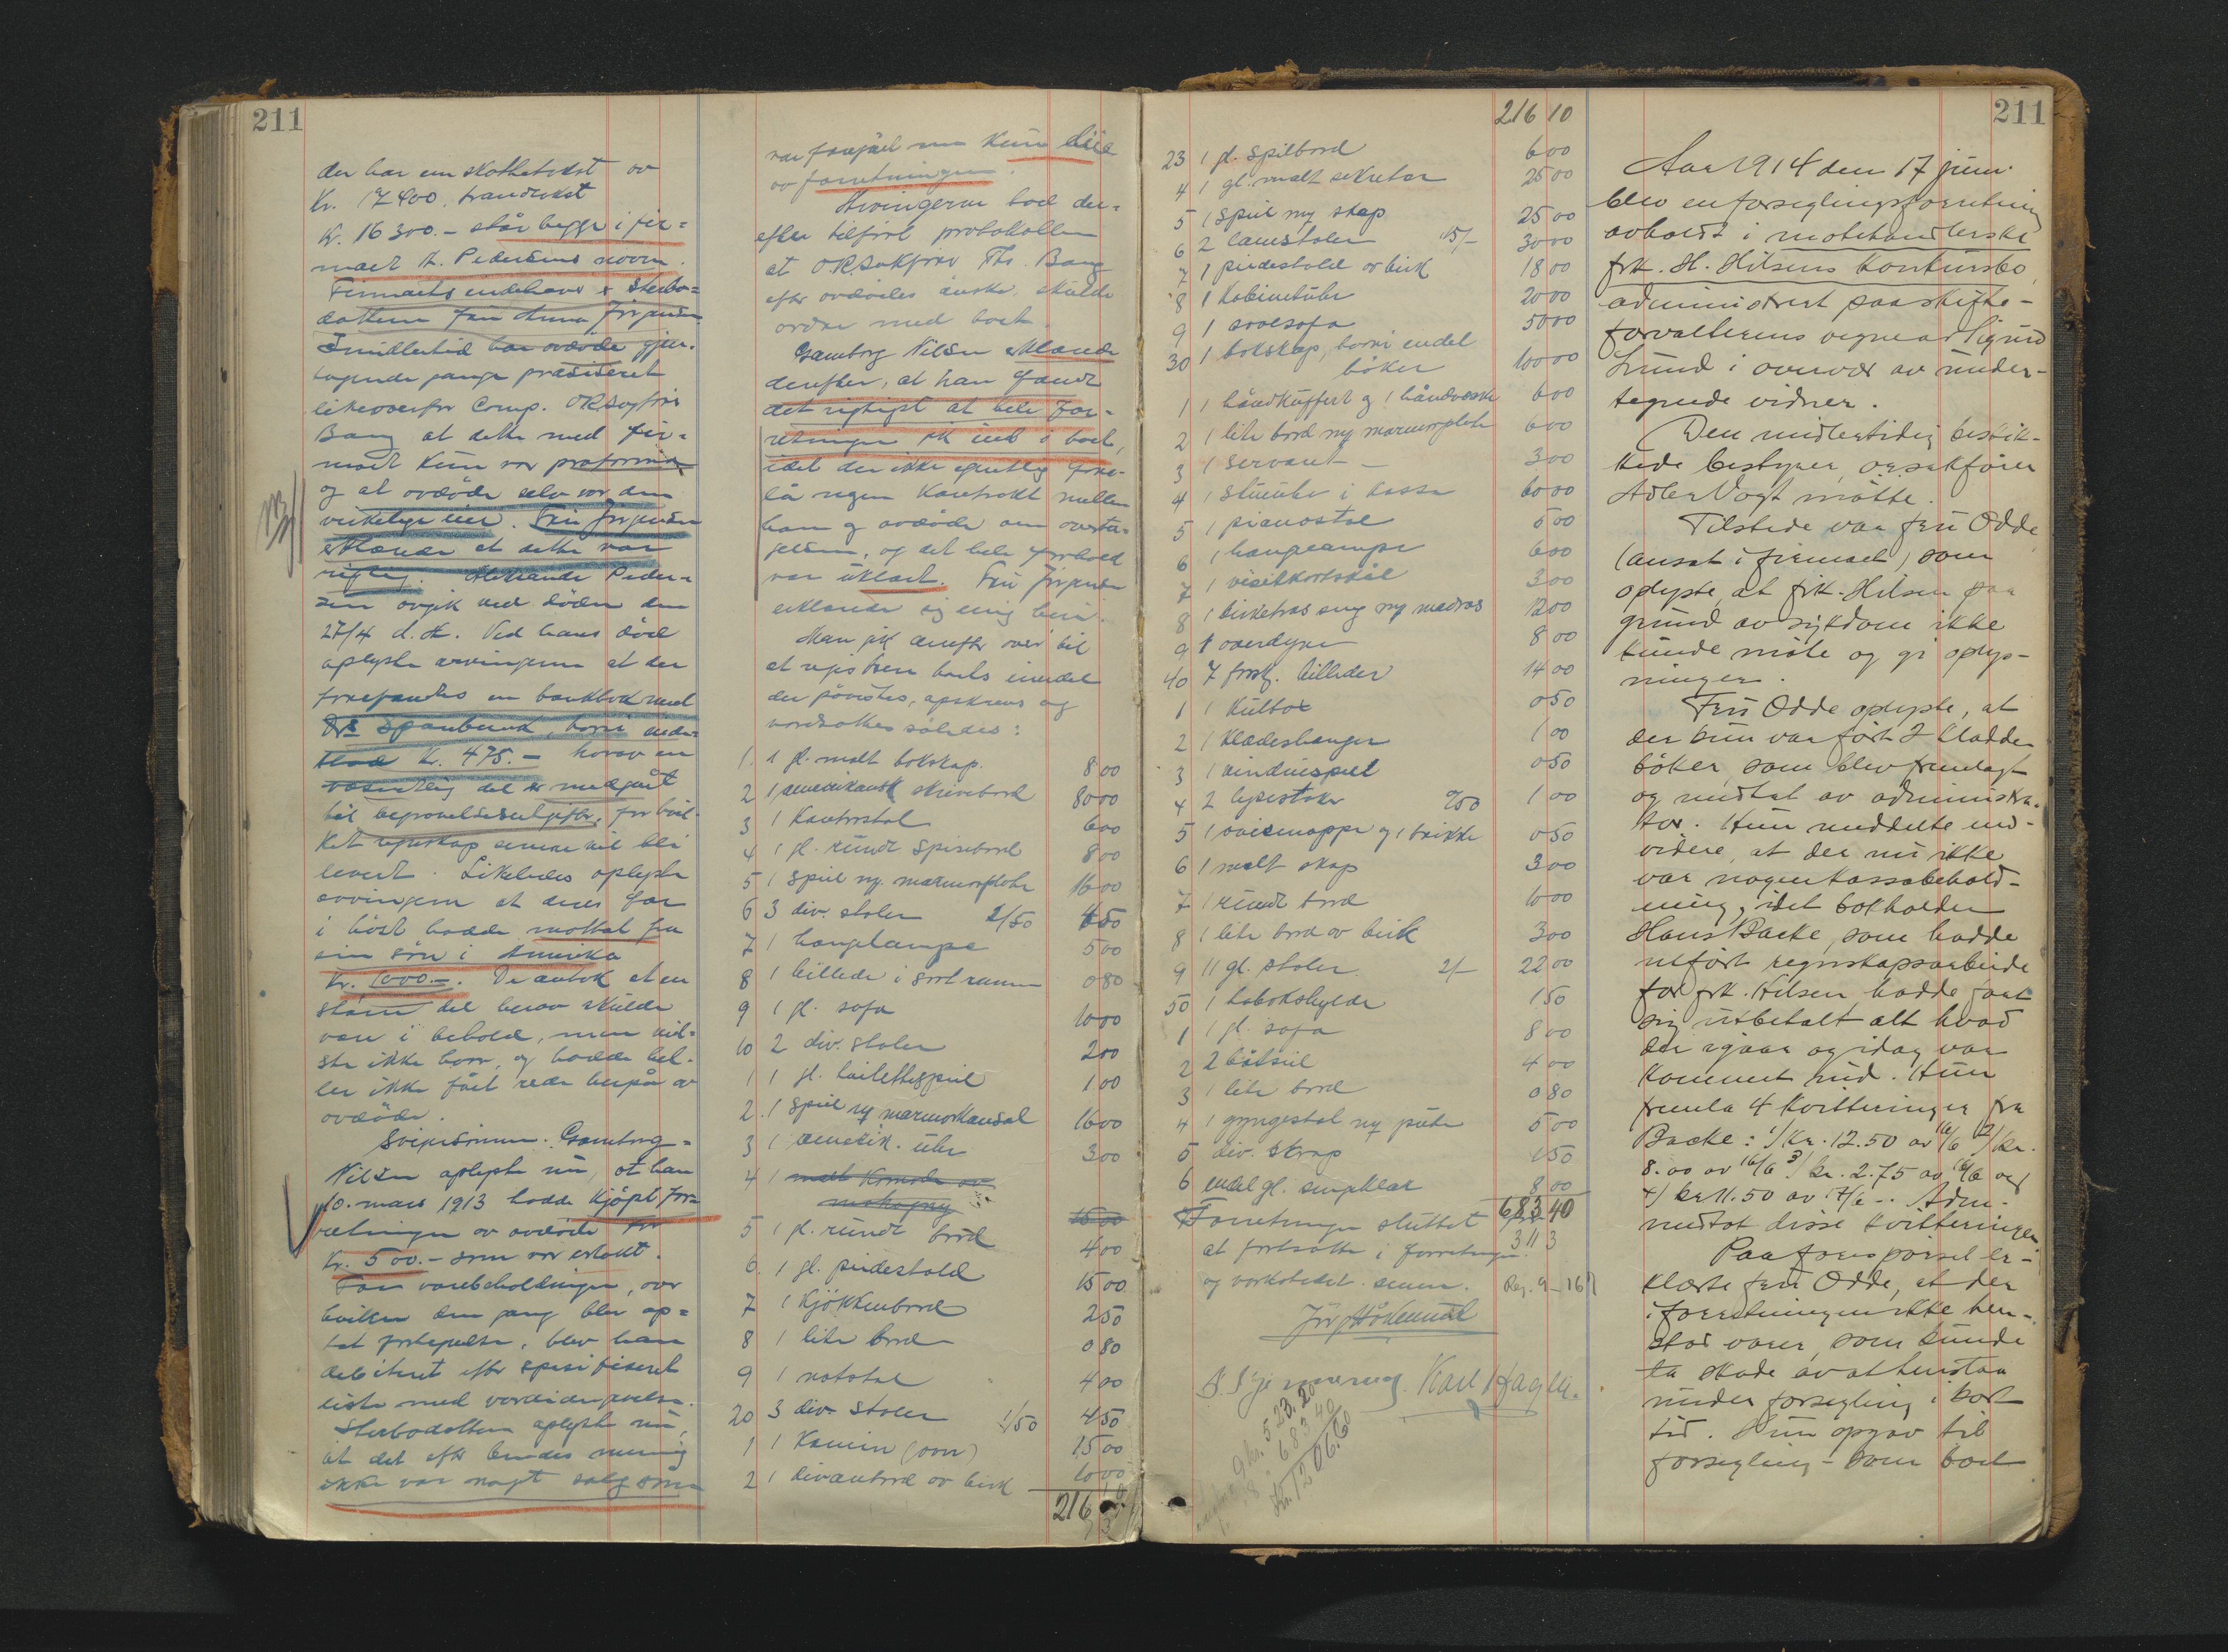 211
der har en skattetakst av
Kr. 17400, branntakst
Kr. 16300.- står begge i fir-
maet A. Pedersens navn.
Firmaets indehaver er Sterbo-
datteren fru Anna Jørgensen
Imidlertid har avdøde gjen-
tagende gange præsiseret
likeoverfor Comp. ORSagfører
Bang at dette med fir-
maet kun var proforma
og at avdøde selv var den
virkelige eier. Fru Jørgensen
erklærede at dette var
rigtig. Aleksander Peder-
sen avgik ved døden den
27/4 d. A. Ved hans død
oplyste arvingerne at der
forefandtes en bankbok med
Drs Sparebank, hvori inde-
stod Kr. 475.- hvorav en
væsentlig del er medgåt
til begravelsesutgifter, for hvil-
ket regnskap senere vil bli
levert. Likeledes oplyste
arvingerne at deres far
i høst hadde mottat fra
sin søn i Amerika
Kr. 1000.-. De antok at en
større del herav skulde
være i behold, men vid-
ste ikke hvor, og hadde hel-
ler ikke fått rede herpå av
avdøde.
Svigersønnen Gamborg-
Nilsen oplyste nu, at han
10. mars 1913 hadde kjøpt for-
retningen av avdøde for
Kr. 500.- som var erlakt.
For varebeholdningen, over
hvilken den gang blev op-
tat fortegnelse, blev han
debiteret efter spesifiseret
liste med verdiangivelse.
Sterbodatteren oplyste nu,
at det efter hendes mening
ikke var noget salg som
var foregået men kun leie
av forretningen.
Arvingerne bad der-
efter tilført protokollen
at ORSakfører Th. Bang
efter avdødes ønske, skulde
ordne med boet.
Gamborg Nilsen erklærede
derefter, at han fandt
det rigtigst at hele for-
retningen gik ind i boet,
idet der ikke egentlig fore-
lå nogen kontrakt mellem
ham og avdøde om overta-
gelsen, og det hele forhold
var uklart. Fru Jørgensen
erklærede sig enig heri.
Man gik derefter over til
at registrere boets eiendel
der påvistes, opskreves og
verdsattes således:
1. 1 gl. malt bokskap. 8 00
2 1 amerikansk skrivebord 80 00
3 1 Kontorstol 6 00
4 1 gl. rundt spisebord 8 00
5 1 speil m/ marmorplate 16 00
6 3 div. stoler 1/50 4 50
7 1 hængelampe 5 00
8 1 billede i sort ramme 0 80
9 1 gl. sofa 10 00
10 2 div. stoler 2 00
1 1 gl. toilettespeil 1 00
2. 1 speil m/ marmorkonsol 16 00
3 1 amerik. uhr 3 00
4 1 malt Komode av
mahogny 15 00
5 1 gl. rundt bord 4 00
6. 1 gl. pidestald 15 00
7 1 Kjøkkenbord 2 50
8 1 lite bord 0 80
9 1 natstol 4 00
20 3 div. stoler 1/50 4 50
1 1 Kamin (ovn) 15 00
2 1 divanbord av birk 10 00
216 10
216 10
23 1 gl. Spilbord 6 00
4 1 gl. malt sekretær 25 00
5 1 Speil m/ skap 25 00
6 2 lænestoler 15/- 30 00
7 1 pidestald av birk 18 00
8 1 Kabinetuhr 20 00
9 1 ovalsofa 50 00
30 1 bokskap, hvori endel
bøker 100 00
1 1 håndkuffert og 1 håndvæske 6 00
2 1 lite bord m/ marmorplate 6 00
3 1 servant - 3 00
4 1 stueuhr i kasse 60 00
5 1 pianostol 5 00
6 1 hængelampe 6 00
7 1 visitkortskål 3 00
8 1 birketræs seng m/ madras 12 00
9 1 overdyne 8 00
40 7 forsk. billeder 14 00
1 1 Kulbox 0 50
2 1 Klædeshænger 1 00
3 1 vinduspeil 0 50
4 2 lysestaker 0/50 1 00
5 1 avismappe og 1 brikke 0 50
6 1 malt skap 3 00
7 1 rundt bord 10 00
8 1 lite bord av birk 3 00
9 11 gl. stoler 2/- 22 00
50 1 bokhylde 1 50
1 1 gl. sofa 8 00
2 2 båtseil 4 00
3 1 lite bord 0 80
4 1 gyngestol m/ pute 5 00
5 div. skrap 1 50
6 endel gl. sengklær 8 00
683 40
Forretningen sluttet for
at fortsætte i forretningen
og verkstedet senere.
311 3
Reg. 9 - 16
Karl Hagen.
523.20
683 40
Kr. 1206.60
211
Aar 1914 den 17 juni
blev en forseglingsforretning
avholdt i motehandlerske
frk. H. Hilsens konkursbo
administrert paa skifte-
forvalterens vegne av Sigurd
Lund i overvær av under-
tegnede vidner.
Den midlertidig beskik-
kede bestyrer, orsakfører
Adler Vogt møtte.
Tilstede var fru Odde
(ansat i firmaet) som
oplyste, at frk. Hilsen paa
grund av sykdom ikke
kunde møte og gi oplys-
ninger.
Fru Odde oplyste, at
der kun var ført 2 kladde
bøker, som blev fremlagt
og mottat av administra-
tor. Hun meddelte end-
videre, at der nu ikke
var nogen kassabehold-
ning, idet bokholder
Hans Backe, som hadde
utført regnskapsarbeide
for frk. Hilsen, hadde faat
sig utbetalt alt hvad
der igaar og idag var
kommet ind. Hun
fremla 4 kvitteringer fra
Backe: 1/ kr. 12.50 av 16/6 2/ kr.
8.00 av 16/6 3/ kr. 2.75 av 16/6 og
4/ kr 11.50 av 17/6 -. Adm.
mottok disse kvitteringer.
Paa forespørsel er-
klærte fru Odde, at der
i forretningen ikke hen-
stod varer, som kunde
ta skade av at henstaa
under forsegling i kort
tid. Hun opgav til
forsegling - som boet